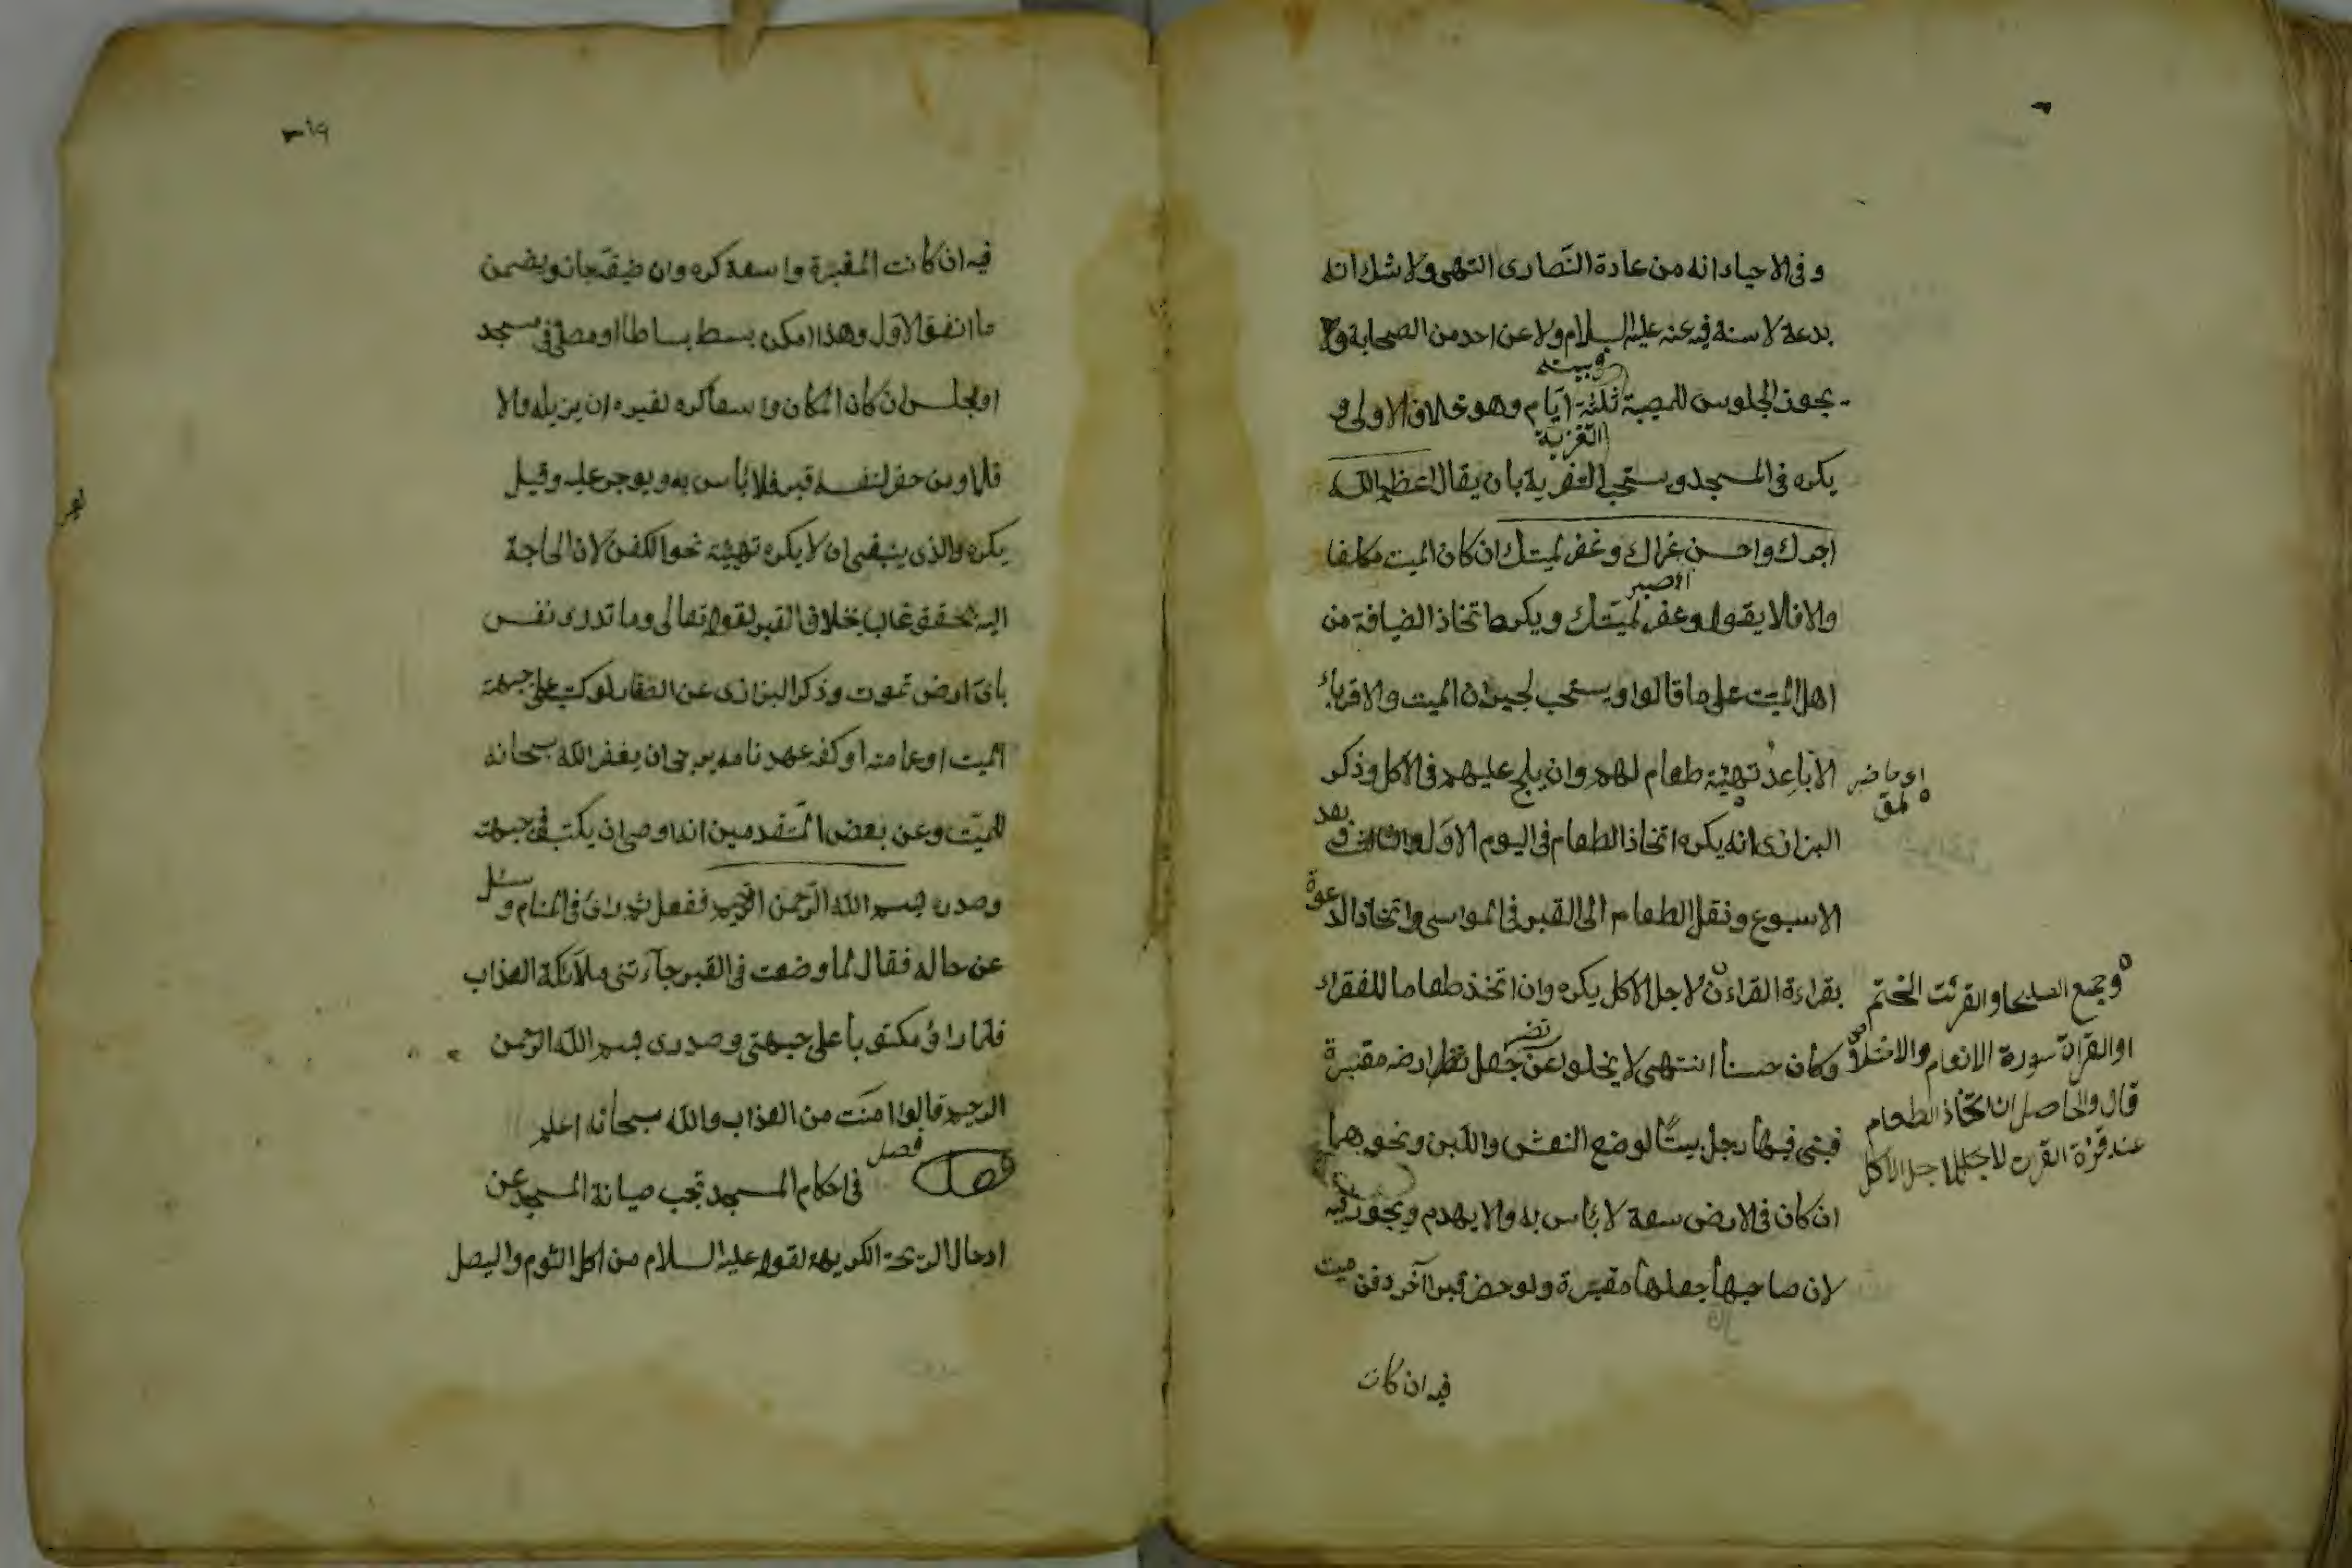 وفى الاحياء انه من عادة النّصارى انتهى ولا شك انه
بدعة لا سنة فيه عنه عليه السلام ولا عن احد من الصحابة ولا
يجوز الجلوس للمصيبة ثلثة ايّام وهو خلاف الاولى و
يكره فى المسجد ويستحب التعزية بان يقال اعظم الله
التعزية
اجرك واحسن عزاك وغفر لميتك ان كان الميت مكلفا
والا فلا يقول وغفر لميّتك ويكره اتخاذ الضيافة من
اهل الميّت على ما قالوا ويستحب لجيران الميت والاقرباء
الاباعد تهيئة طعام لهم وان يلح عليهم فى الاكل وذكر
البزازى انه يكره اتخاذ الطعام فى اليوم الاوّل والثالث وبعد
الاسبوع ونقل الطعام الى القبر فى المواسم واتخاذ الدعوة
بقراءة القراءن لاجل الاكل يكره وان اتخذ طعاما للفقراء
وجمع الصلحا والقرئت الختم
او القراة سورة الانعام والاخلاص
قال والحاصل ان اتخاذ الطعام
عند قرئة القران لاجل الاكل
وكان حسنا انتهى لا يخلوا عن نظر جعل ارضه مقبرة
فبنى فيها رجل بيتًا لوضع النعش واللبن ونحوهما
ان كان فى الارض سعة لا بأس به والا يهدم ويجوز فيه
لان صاحبها جعلها مقبرة ولو حفر قبرا آخر دفن ميت
فيه ان كانت
فيه ان كانت المقبرة واسعة كره وان ضيقة جاز ويضمن
ما انفق الاول وهذا كمن بسط بساطا او مصلى فى مسجد
او مجلس ان كان المكان واسعا كره لغيره ان يزيله والا
فلا ومن حفر لنفسه قبر فلا بأس به ويوجر عليه وقيل
يكره والذى ينبغى ان لا يكره تهيئة نحو الكفن لان الحاجة
اليه تحقق غالب بخلاف القبر لقوله تعالى وما تدرى نفس
باىّ ارض تموت وذكر البزازى عن الصفار لو كتب على جبهة
الميت او عمامته او كفنه عهد نامه يرجى ان يغفر الله سبحانه
للميّت وعن بعض المتقدمين انه اوصى ان يكتب فى جبهته
وصدره بسم الله الرّحمن الرّحيم ففعل ثم رائ فى المنام وسئل
عن حاله فقال لما وضعت فى القبر جآءتنى ملآئكة العذاب
فلمّا راؤ مكتوبا على جبهتى وصدرى بسم الله الرّحمن
الرحيم قالوا امنت من العذاب والله سبحانه اعلم
فصل فى احكام المسجد تجب صيانة المسجد عن
فصل
ادخال الرّيحة الكريهة لقوله عليه السلام من اكل الثوم والبصل